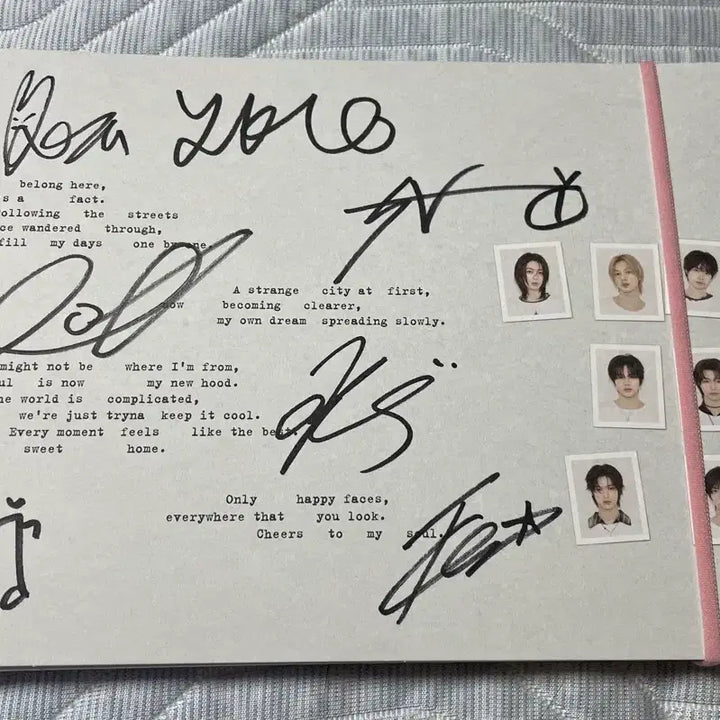 belong here,
s a fact.
ollowing the streets
ce wandered through,
fill my days one by one
A strange city at first,
now becoming clearer,
my own dream spreading slowly.
might not be where I'm from,
ul is now my new hood.
he world is complicated,
we're just tryna keep it cool.
Every moment feels like the best.
sweet home.
Only happy faces,
everywhere that you look.
Cheers to my soul.